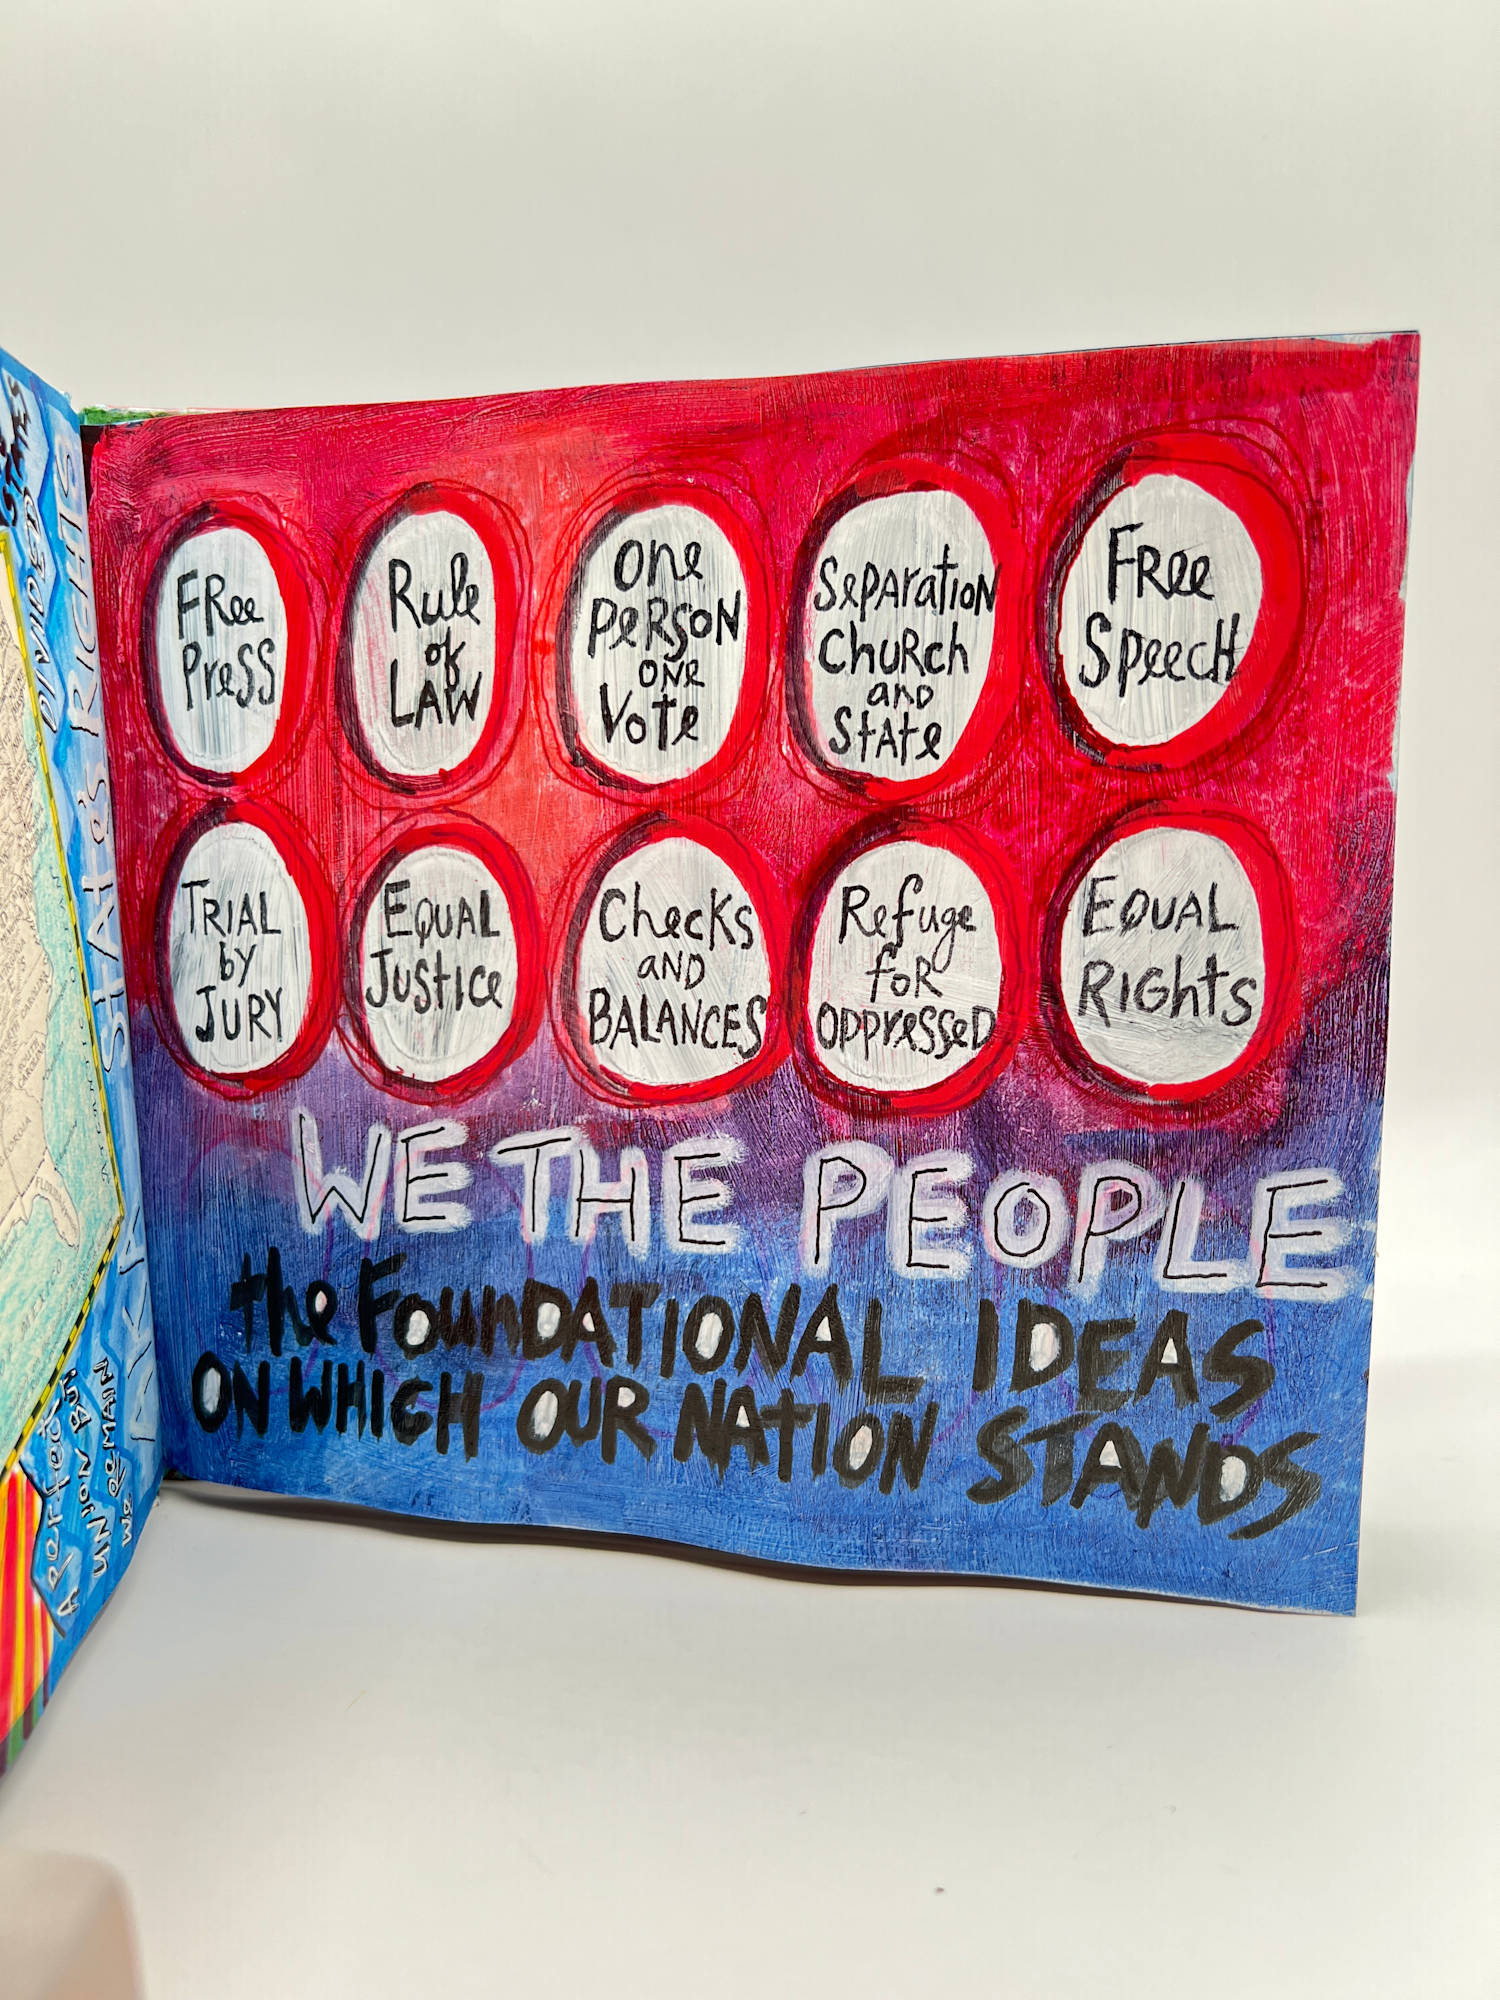 FRee
Press
Rule
of
LAW
one
PeRSON
ONe
Vote
SePARatioN
ChuRch
and
StAte
FRee
Speech
TRIAL
by
JURY
EQUAL
JUStice
Checks
AND
BALANCES
Refuge
foR
oppresseD
EQUAL
RIGhts
WE THE PEOPLE
the FounDATIONAL IDEAS
ON WHICH OUR NAtION STANDS
STATE'S RIGHTS
A Perfect
UNION BUT
We ReMAIN
FLORIDA